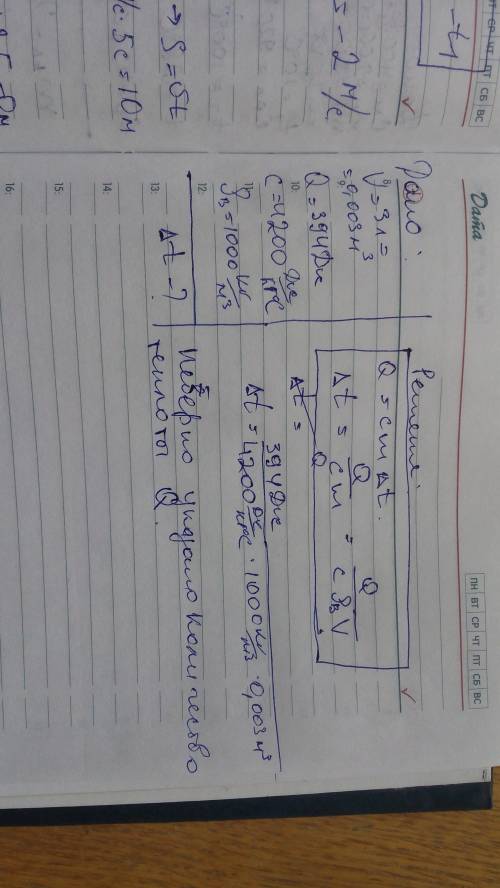 Дата
ПН ВТ СР ЧТ ПТ СБ ВС
Дано:
V = 3 л =
= 0,003 м³
Q = 394 Дж
c = 4200 Дж/кг°C
ρв = 1000 кг/м³
Δt - ?
Решение:
Q = cmΔt.
Δt = Q/cm = Q/cρвV
Δt =
Q
Δt = 394 Дж/4200 Дж/кг°C · 1000 кг/м³ · 0,003 м³
Неверно указано количество
теплоты Q.
8:
9:
10:
11:
12:
13:
14:
15:
16:
ПТ СР ЧТ ПТ СБ ВС
-t1
= -2 м/с
→ S = υt
/с · 5с = 10м